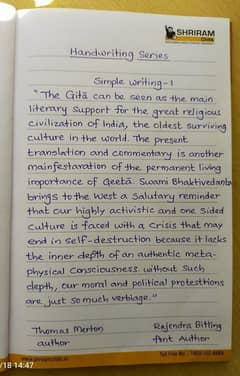 SHRIRAM
Handwriting Series
Simple writing-1
"The Gitā can be seen as the main
literary support for the great religious
civilization of India, the oldest surviving
culture in the world. The present
translation and commentary is another
mainfestaration of the permanent living
importance of Geetā. Swami Bhaktivedanta
brings to the West a Salutary reminder
that our highly activistic and one sided
culture is faced with a crisis that may
end in self-destruction because it lacks
the inner depth of an authentic meta-
physical Consciousness. without Such
depth, our moral and political protestions
are just so much verbiage."
Thomas Merton
Rajendra Bitling
author
Font Author
/18 14:47